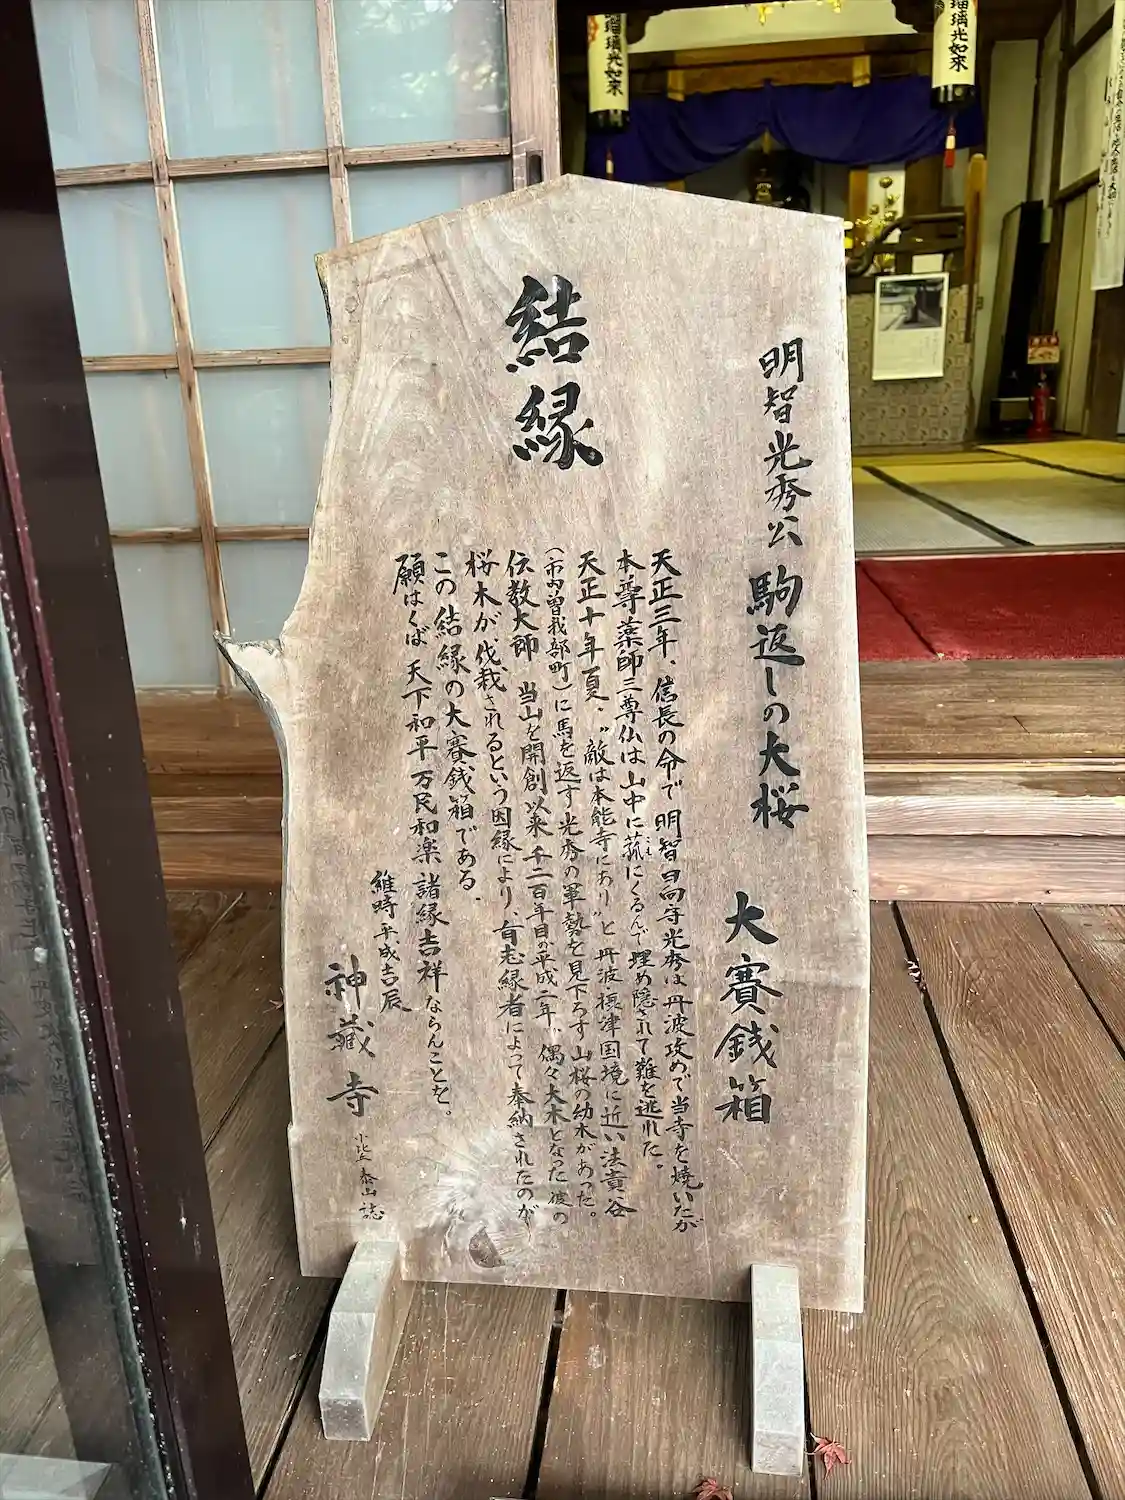 明智光秀公 駒返しの大桜 大賽銭箱
結縁
天正三年、信長の命で明智日向守光秀は丹波攻めで当寺を焼いたが
本尊薬師三尊仏は山中に菰にくるんで埋め隠されて難を逃れた。
こも
天正十年夏、〝敵は本能寺にあり〟と丹波・摂津国境に近い法貴谷
(市内曽我部町)に馬を返す光秀の軍勢を見下ろす山桜の幼木があった。
伝教大師 当山を開創以来 千二百年目の平成二年、偶々大木となった彼の
桜木が伐栽されるという因縁により、有志縁者によって奉納されたのが
この結縁の大賽銭箱である.
願はくば 天下和平 万民和楽 諸縁吉祥ならんことを。
維時平成吉辰
神蔵寺 小比 泰山 誌
瑠璃光如来
瑠璃光如来